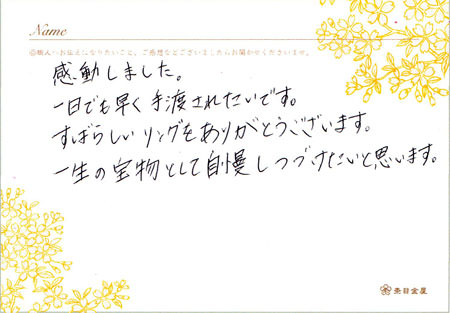 Name
◎職人へお伝えになりたいこと、ご感想などございましたらお聞かせくださいませ。
感動しました。
一日でも早く手渡されたいです。
すばらしいリングをありがとうございます。
一生の宝物として自慢しつづけたいと思います。
杢目金屋